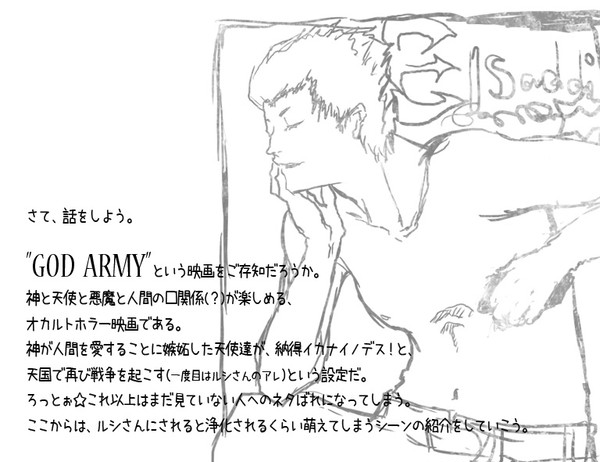 Saddi
さて、話をしよう。
"GOD ARMY"という映画をご存知だろうか。
神と天使と悪魔と人間の□関係(?)が楽しめる、
オカルトホラー映画である。
神が人間を愛することに嫉妬した天使達が、納得イカナイノデス!と、
天国で再び戦争を起こす(一度目はルシさんのアレ)という設定だ。
ろっとぉ☆これ以上はまだ見ていない人へのネタばれになってしまう。
ここからは、ルシさんにされると浄化されるくらい萌えてしまうシーンの紹介をしていこう。